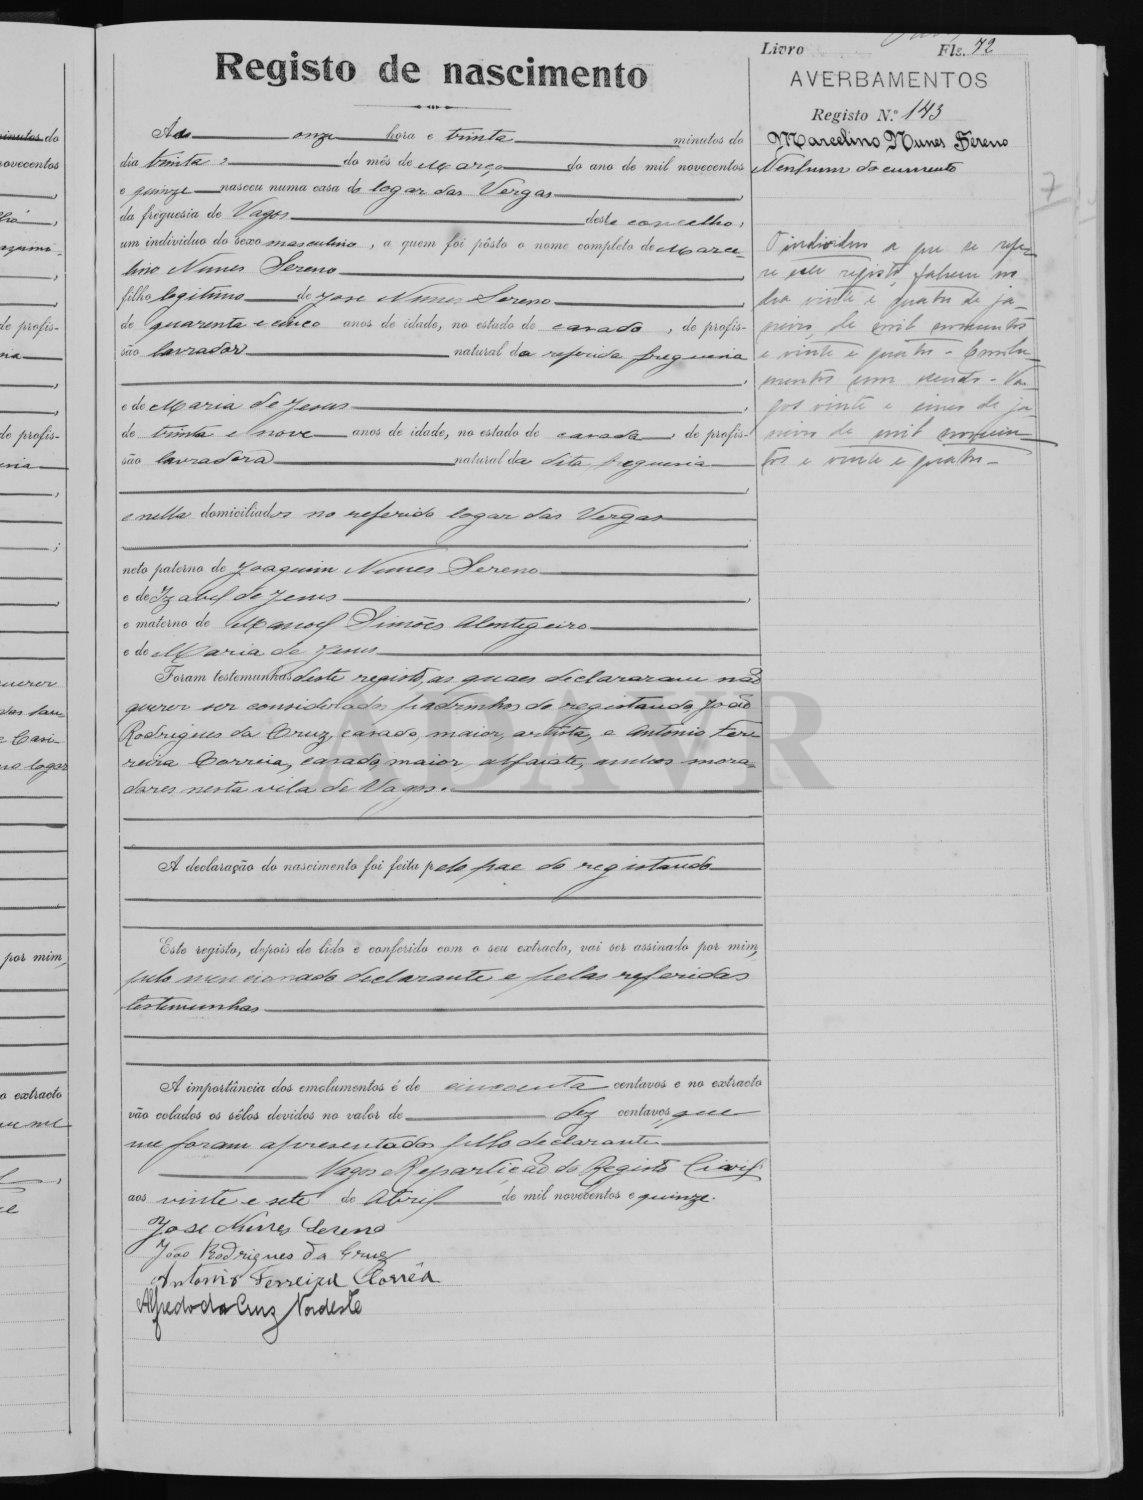 Livro Fls. 72
Registo de nascimento
AVERBAMENTOS
Registo N.º 143
Marcelino Nunes Sereno
Nenhum documento
Ás onze hora e trinta minutos do
dia trinta do mês de Março do ano de mil novecentos
e quinze nasceu numa casa do logar das Vergas,
da freguesia de Vagos deste concelho,
um individuo do sexo masculino, a quem foi pôsto o nome completo de Marce-
lino Nunes Sereno,
filho legitimo de Jose Nunes Sereno,
de quarenta e cinco anos de idade, no estado de casado, de profis-
são lavrador natural da referida freguesia
,
e de Maria de Jesus,
de trinta e nove anos de idade, no estado de casada, de profis-
são lavradora natural da dita freguesia
,
e nella domiciliados no referido logar das Vergas
;
neto paterno de Joaquim Nunes Sereno
e de Izabel de Jesus,
e materno de Manoel Simões
e de Maria de Jesus
Foram testemunhas deste registo, as quaes declararam não
querer ser considerados padrinhos do registando, João
Rodrigues da Cruz, casado, maior, artista, e Antonio Fer-
reira Correia, casado, maior, alfaiate, ambos mora-
dores nesta vila de Vagos.
A declaração do nascimento foi feita pelo pae do registando
Este registo, depois de lido e conferido com o seu extracto, vai ser assinado por mim,
pelo mencionado declarante e pelas referidas
testemunhas
A importância dos emolumentos é de cincoenta centavos e no extracto
vão colados os sêlos devidos no valor de dez centavos, que
me foram apresentados pello declarante.
Vagos e Repartição do Registo Civil
aos vinte e sete de Abril de mil novecentos e quinze.
Jose Nunes Sereno
João Rodrigues da Cruz
Antonio Ferreira Corrêa
Alfredo da Cruz Nordeste
O individuo a que se refe-
re este registo, faleceu no
dia vinte e quatro de ja-
neiro de mil novecentos
e vinte e quatro - Emolu-
mentos um escudo - Va-
gos vinte e cinco de ja-
neiro de mil novecen-
tos e vinte e quatro -
7
ADAVR
minutos do
novecentos
de profis-
de profis-
querer
logar
por mim,
o extracto